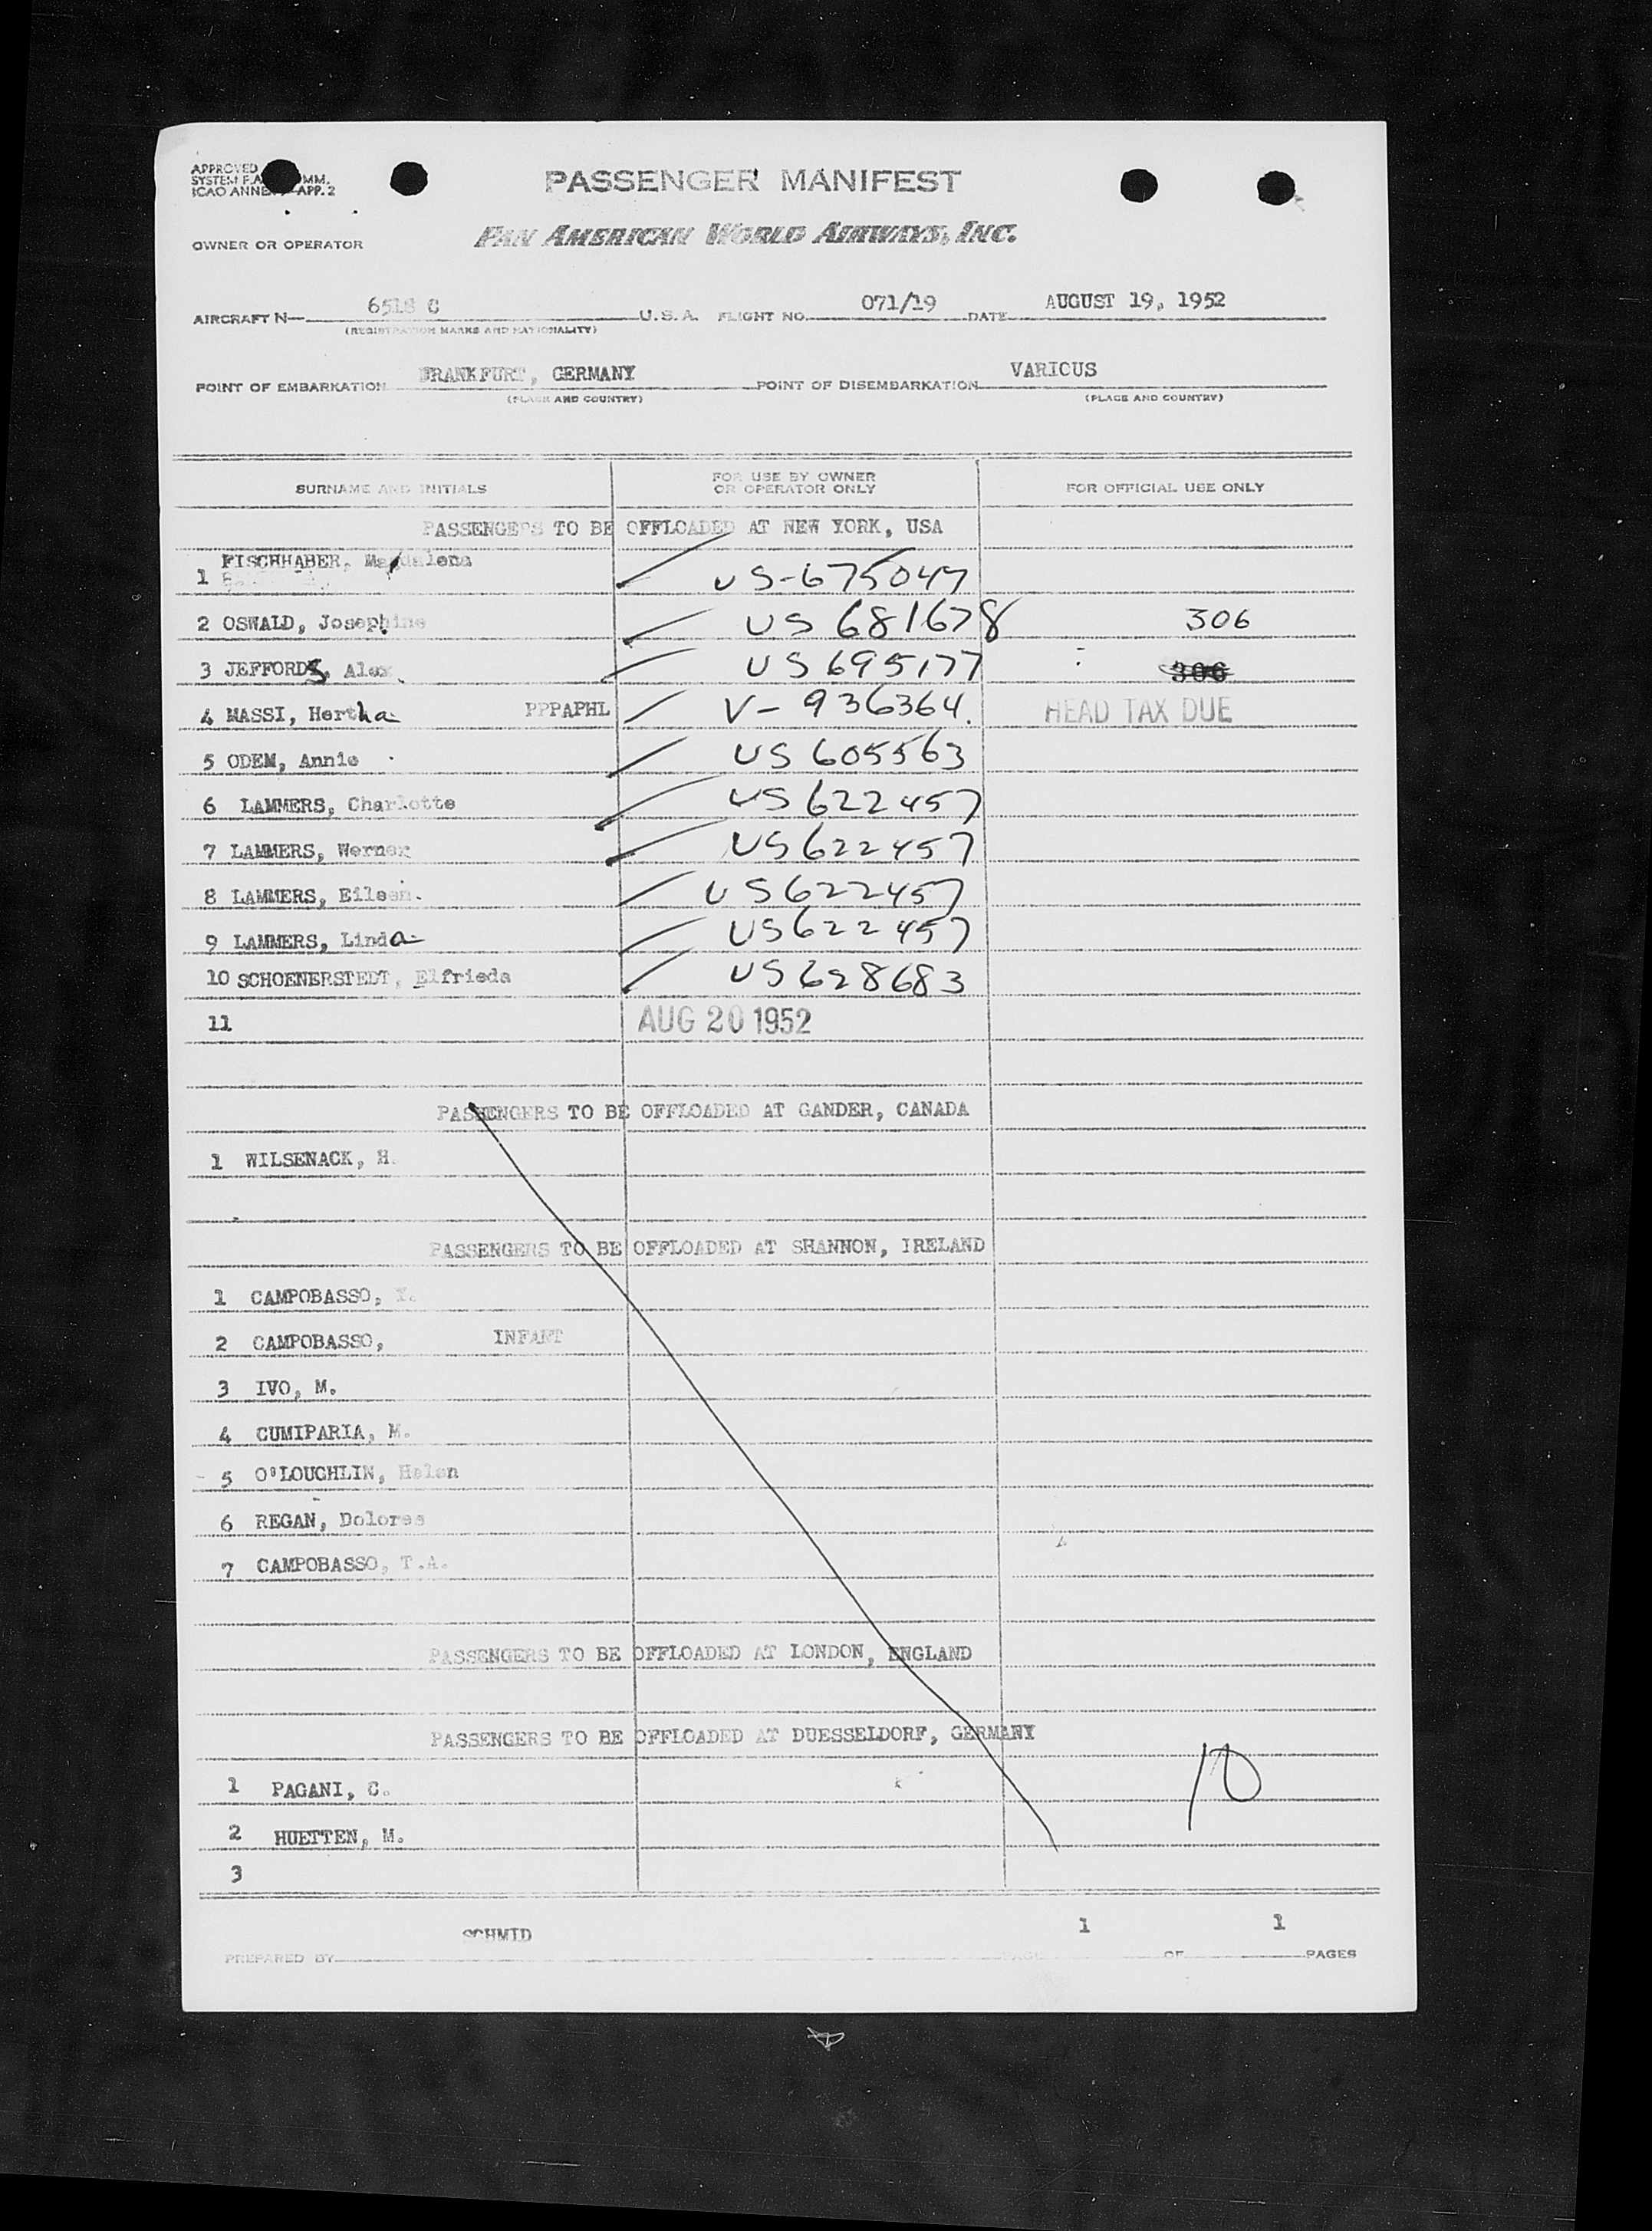 APPROVED
PASSENGER MANIFEST
SYSTEM F.A. COMM.
ICAO ANNEX APP. 2
OWNER OR OPERATOR PAN AMERICAN WORLD AIRWAYS, INC.
AIRCRAFT N— 6518 C U.S.A. FLIGHT NO. 071/19 DATE AUGUST 19, 1952
(REGISTRATION MARKS AND NATIONALITY)
POINT OF EMBARKATION FRANKFURT, GERMANY POINT OF DISEMBARKATION VARIOUS
(PLACE AND COUNTRY) (PLACE AND COUNTRY)
SURNAME AND INITIALS FOR USE BY OWNER OR OPERATOR ONLY FOR OFFICIAL USE ONLY
PASSENGERS TO BE OFFLOADED AT NEW YORK, USA
1 FISCHHABER, Magdalena US-675047
2 OSWALD, Josephine US 681678 306
3 JEFFORDS, Alex US 695177 306
4 MASSI, Hertha PPPAPHL V-936364. HEAD TAX DUE
5 ODEM, Annie US 605563
6 LAMMERS, Charlotte US 622457
7 LAMMERS, Werner US 622457
8 LAMMERS, Eileen. US 622457
9 LAMMERS, Linda US 622457
10 SCHOENERSTEDT, Elfrieda US 628683
11 AUG 20 1952
PASSENGERS TO BE OFFLOADED AT GANDER, CANADA
1 WILSENACK, H.
PASSENGERS TO BE OFFLOADED AT SHANNON, IRELAND
1 CAMPOBASSO, Y.
2 CAMPOBASSO, INFANT
3 IVO, M.
4 CUMIPARIA, M.
5 O'LOUCHLIN, Helen
6 REGAN, Dolores
7 CAMPOBASSO, T.A.
PASSENGERS TO BE OFFLOADED AT LONDON, ENGLAND
PASSENGERS TO BE OFFLOADED AT DUESSELDORF, GERMANY
1 PAGANI, C.
10
2 HUETTEN, M.
3
PREPARED BY SCHMID PAGE 1 OF 1 PAGES